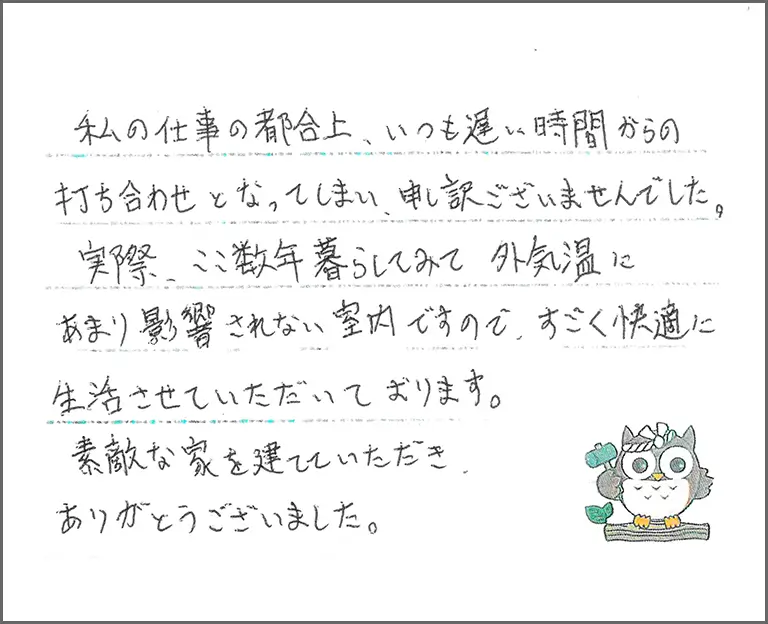 私の仕事の都合上、いつも遅い時間からの
打ち合わせとなってしまい、申し訳ございませんでした。
実際、ここ数年暮らしてみて 外気温に
あまり影響されない室内ですので、すごく快適に
生活させていただいております。
素敵な家を建てていただき、
ありがとうございました。